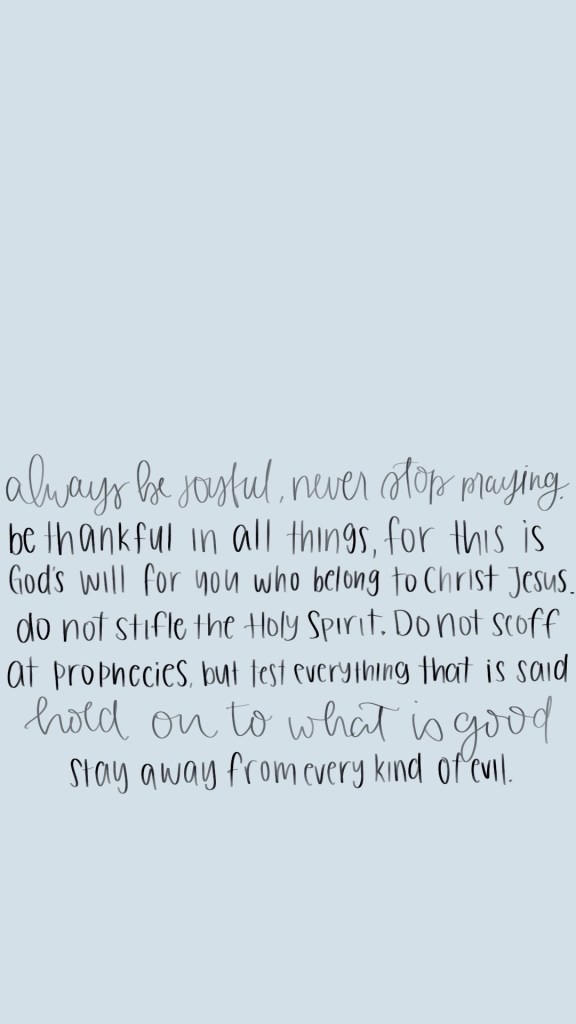 always be joyful, never stop praying.
be thankful in all things, for this is
God's will for you who belong to Christ Jesus.
do not stifle the Holy Spirit. Do not scoff
at prophecies, but test everything that is said
hold on to what is good
stay away from every kind of evil.